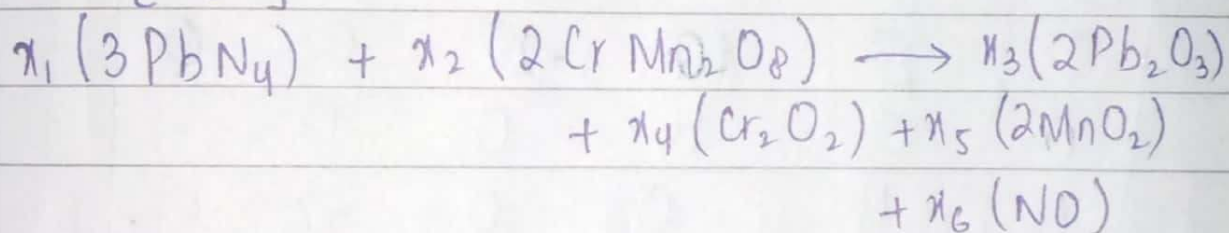 x₁ (3 Pb N₄) + x₂ (2 Cr Mn₂ O₈) ⟶ x₃ (2 Pb₂ O₃)
+ x₄ (Cr₂ O₂) + x₅ (2 Mn O₂)
+ x₆ (NO)